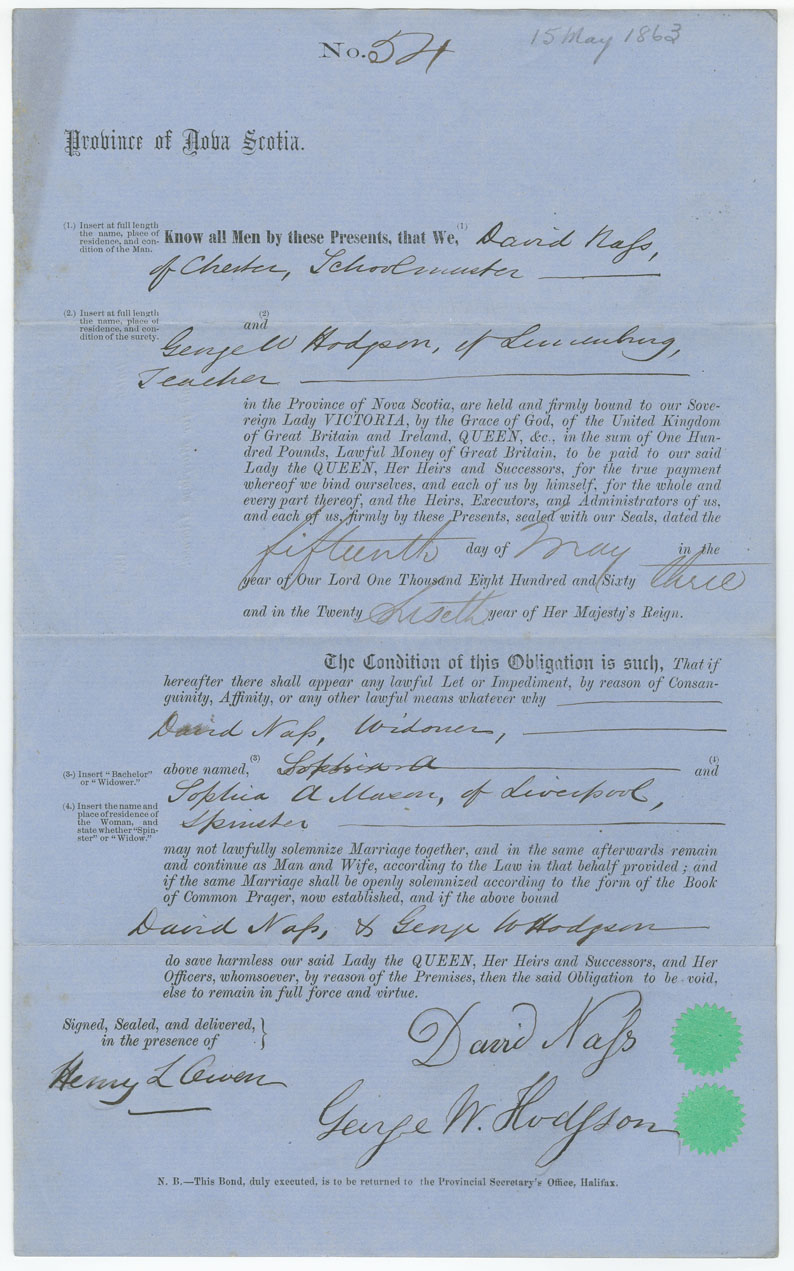 No. 54
15 May 1863
Province of Nova Scotia.
(1.) Insert at full length
the name, place of
residence, and con-
dition of the Man.
Know all Men by these Presents, that We, (1) David Naſs,
of Chester, Schoolmaster
(2.) Insert at full length
the name, place of
residence, and con-
dition of the surety.
(2)
and
George W Hodgson, of Lunenburg,
Teacher
in the Province of Nova Scotia, are held and firmly bound to our Sove-
reign Lady VICTORIA, by the Grace of God, of the United Kingdom
of Great Britain and Ireland, QUEEN, &c., in the sum of One Hun-
dred Pounds, Lawful Money of Great Britain, to be paid to our said
Lady the QUEEN, Her Heirs and Successors, for the true payment
whereof we bind ourselves, and each of us by himself, for the whole and
every part thereof, and the Heirs, Executors, and Administrators of us,
and each of us, firmly by these Presents, sealed with our Seals, dated the
fifteenth day of May in the
year of Our Lord One Thousand Eight Hundred and Sixty three
and in the Twenty year of Her Majesty's Reign.
The Condition of this Obligation is such, That if
hereafter there shall appear any lawful Let or Impediment, by reason of Consan-
guinity, Affinity, or any other lawful means whatever why
David Naſs, Widower,
(3.) Insert "Bachelor"
or "Widower."
above named, (3) Sophia A and (4)
(4.) Insert the name and
place of residence of
the Woman, and
state whether "Spin-
ster" or "Widow."
Sophia A Mason, of Liverpool,
Spinster
may not lawfully solemnize Marriage together, and in the same afterwards remain
and continue as Man and Wife, according to the Law in that behalf provided; and
if the same Marriage shall be openly solemnized according to the form of the Book
of Common Prager, now established, and if the above bound
David Naſs, & George W Hodgson
do save harmless our said Lady the QUEEN, Her Heirs and Successors, and Her
Officers, whomsoever, by reason of the Premises, then the said Obligation to be void,
else to remain in full force and virtue.
Signed, Sealed, and delivered,
in the presence of
Henry L Owen
David Naſs
George W. Hodgson
N. B.—This Bond, duly executed, is to be returned to the Provincial Secretary's Office, Halifax.